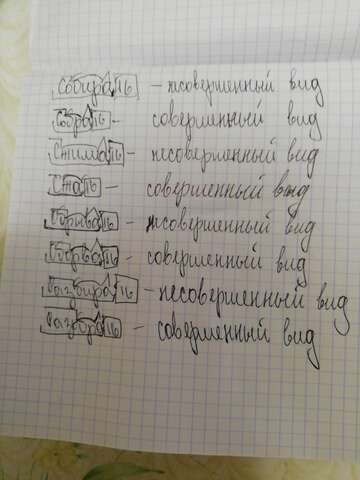 Собирать – несовершенный вид
Собрать – совершенный вид
– несовершенный вид
Стать – совершенный вид
Обрывать – несовершенный вид
– совершенный вид
Разбирать – несовершенный вид
– совершенный вид